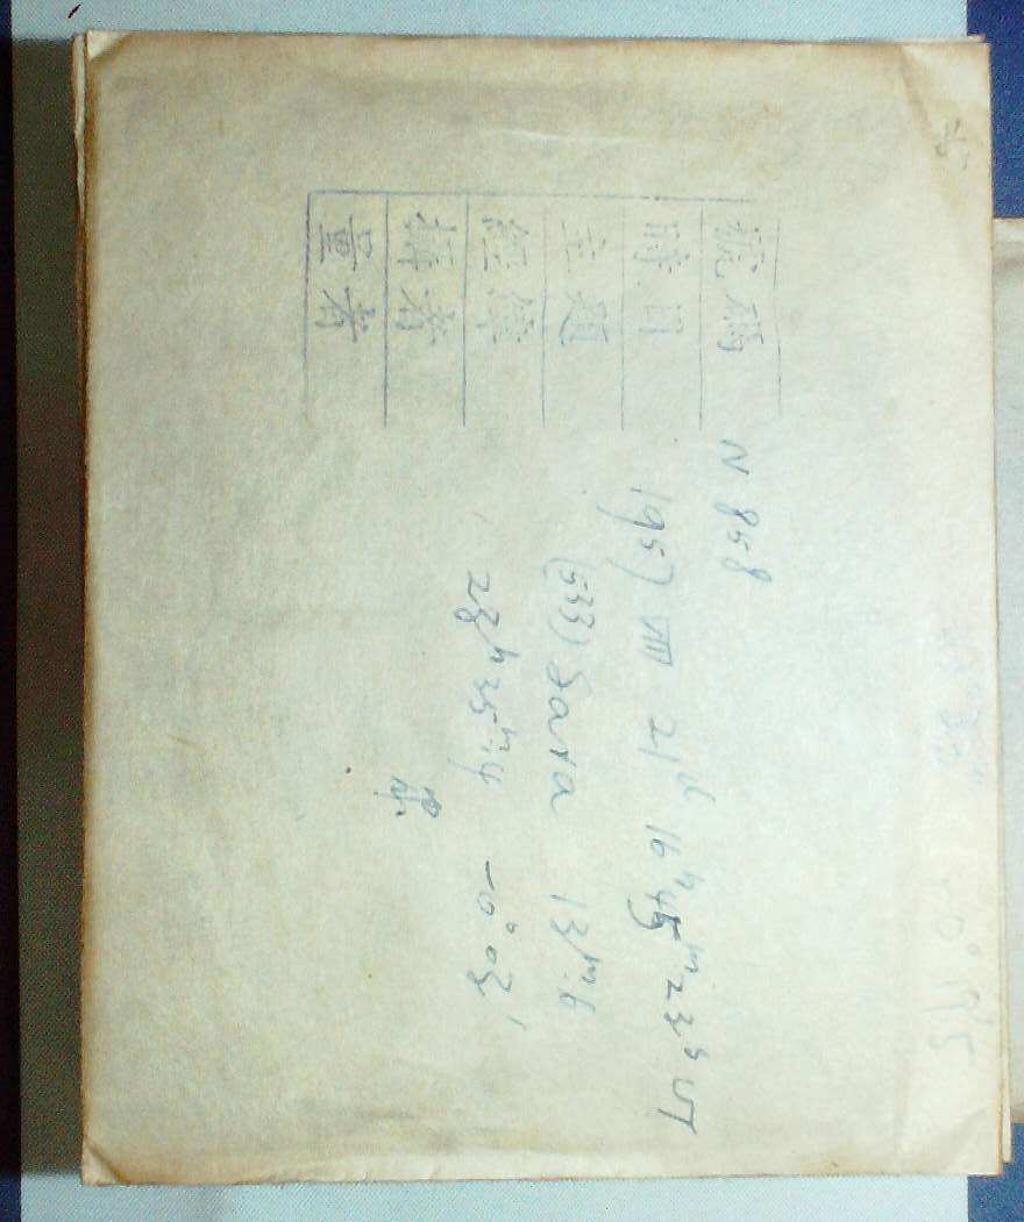 號碼 N 858
時日 1957 VIII 21ᵈ 16ʰ45ᵐ23ˢ UT
主題 (533) Sara 13ᵐ.6
經緯 23ʰ35ᵐ.4 -0°03′
攝者
量者